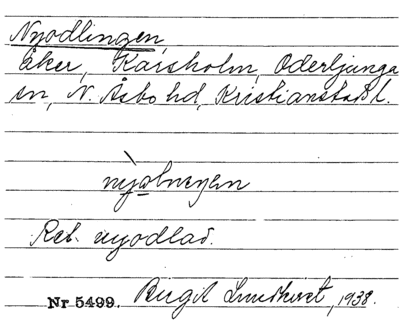 Nyodlingen
åker, Kärsholm, Oderljunga
sn, N. Åsbo hd, Kristianstads l.
Rel. nyodlad.
Nr 5499. Birgit Lundkvist, 1938.